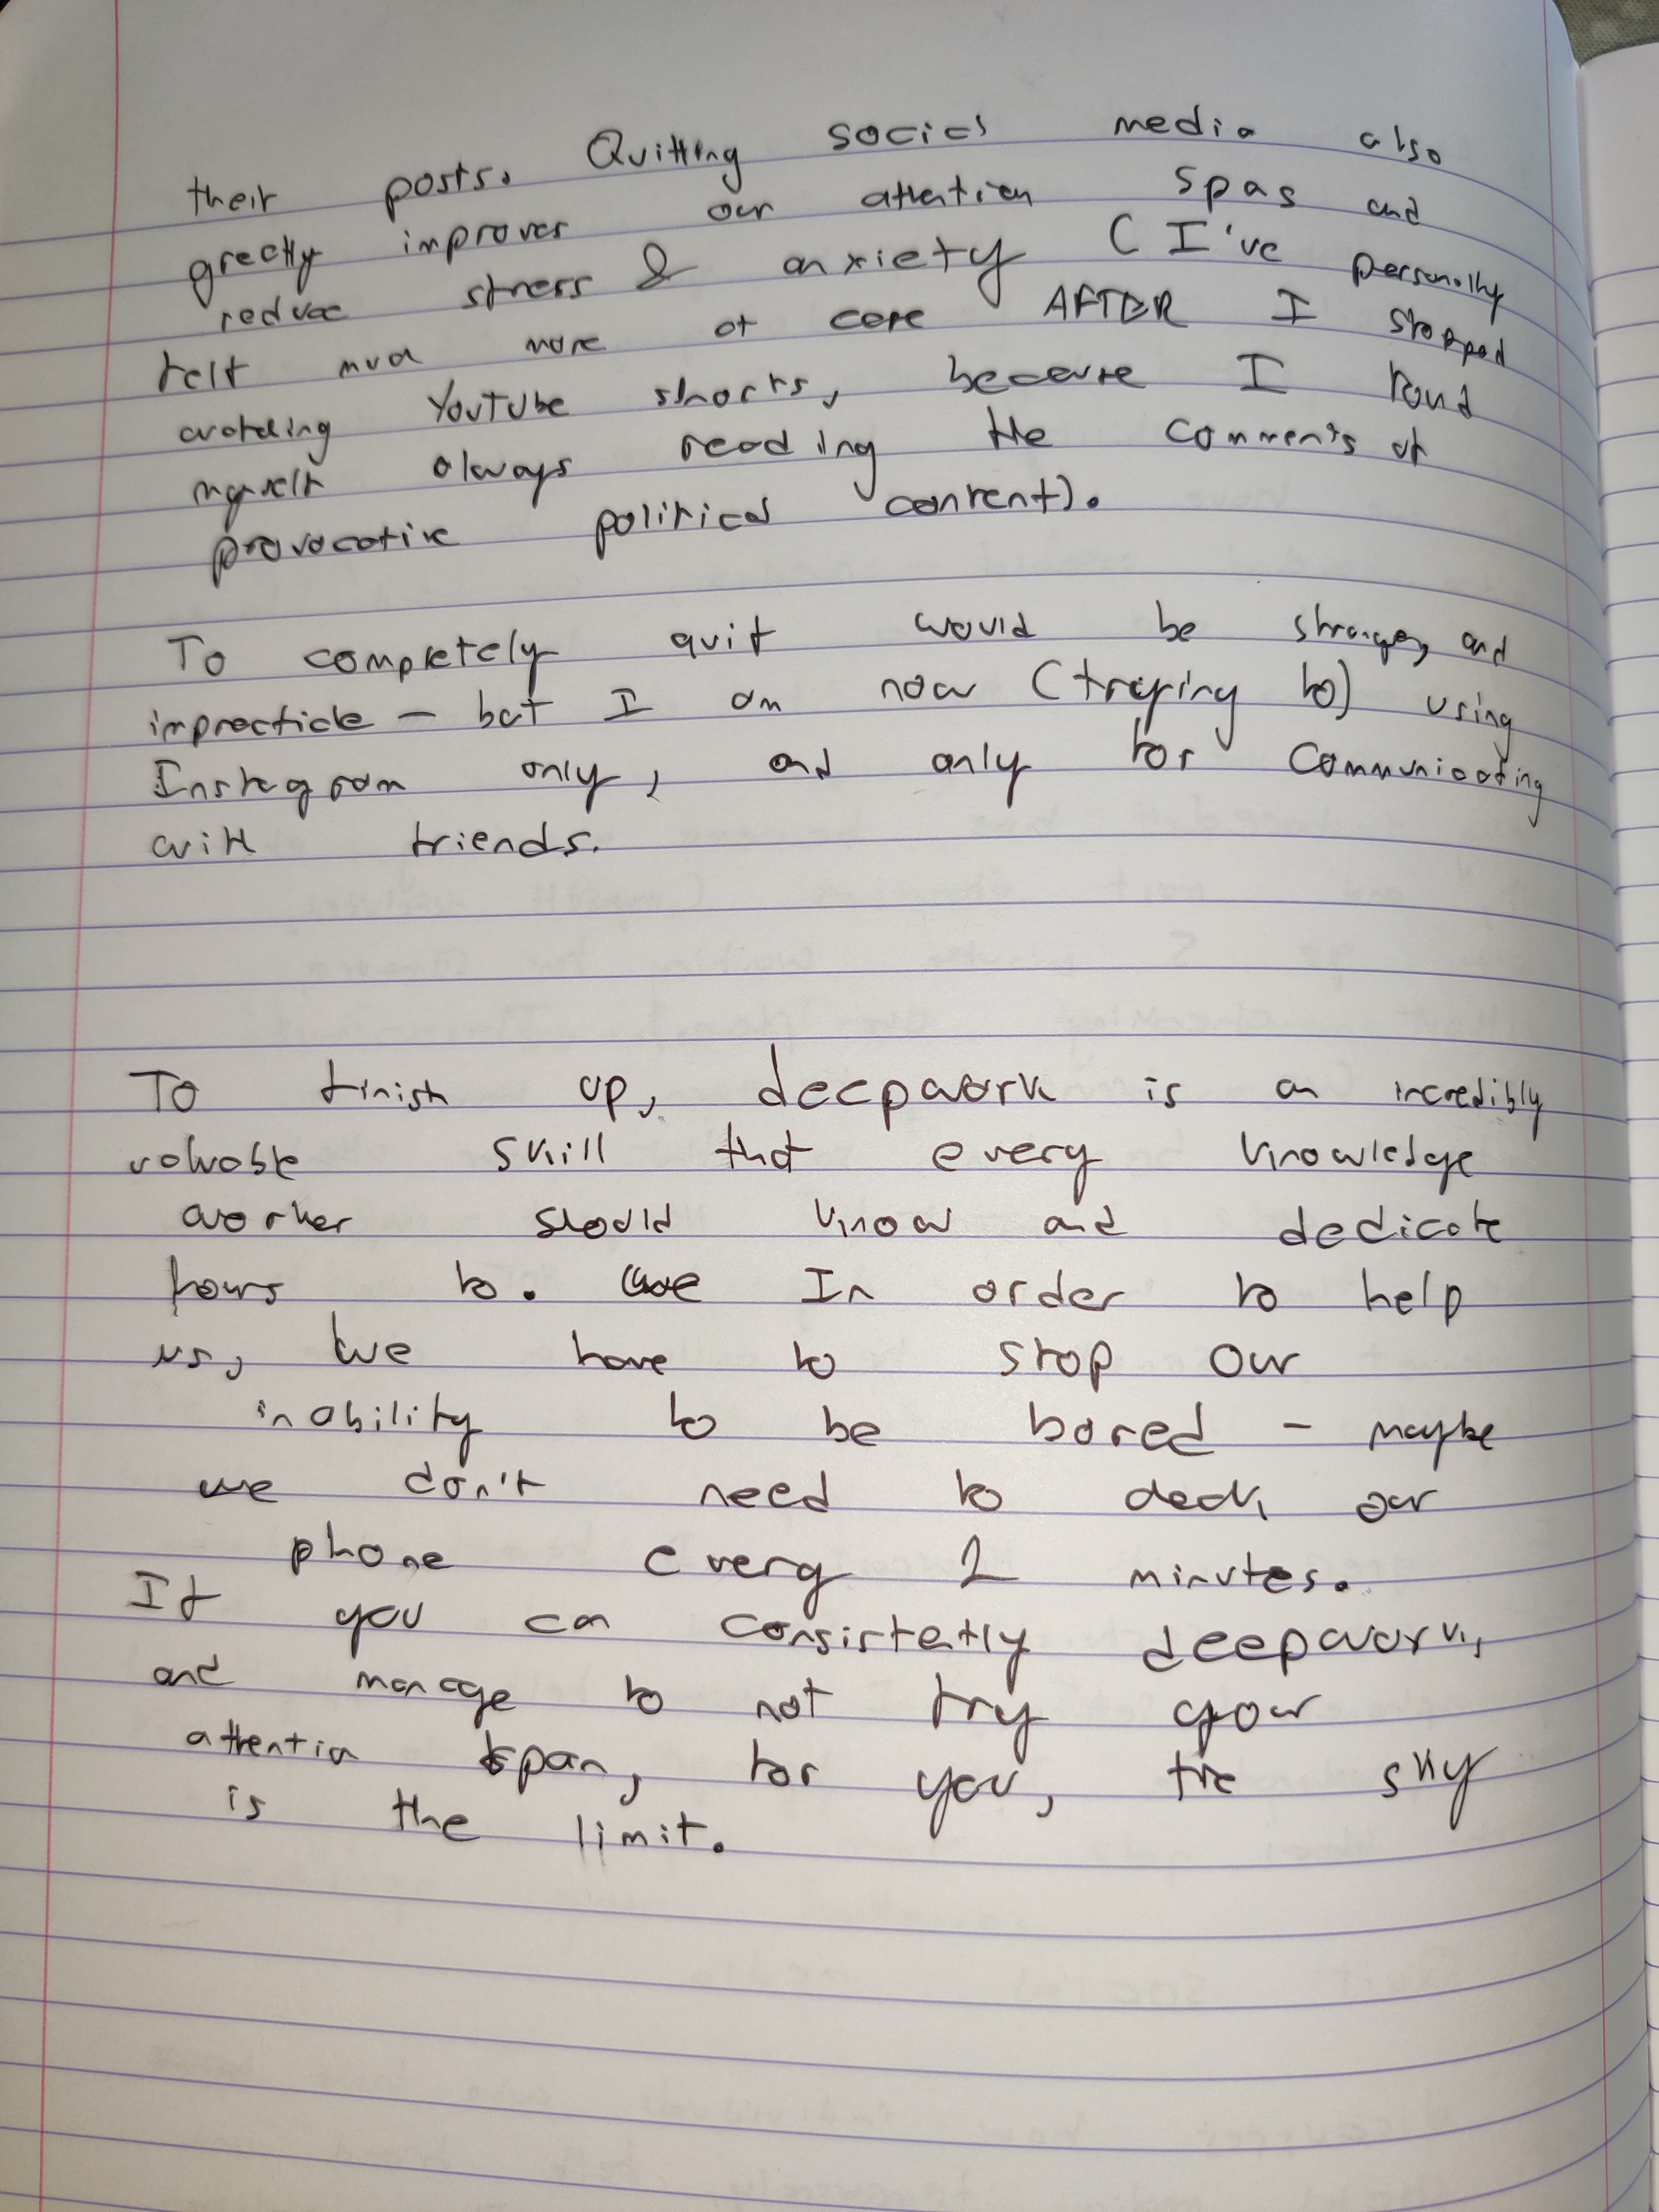 their posts. Quitting social media also
greatly improves our attention spas and
reduce stress & anxiety (I've personally
felt much more at core AFTER I stopped
watching Youtube shorts, because I found
myself always reading the comments of
provocative political content).
To completely quit would be strange, and
impractice - but I am now (trying to) using
Instagram only, and only for communicating
with friends.
To finish up, deepwork is an incredibly
valuable skill that every knowledge
worker should know and dedicate
hours to. In order to help
us, we have to stop our
inability to be bored - maybe
we don't need to check our
phone every 2 minutes.
If you can consistently deepwork,
and manage to not fry your
attention span, for you, the sky
is the limit.